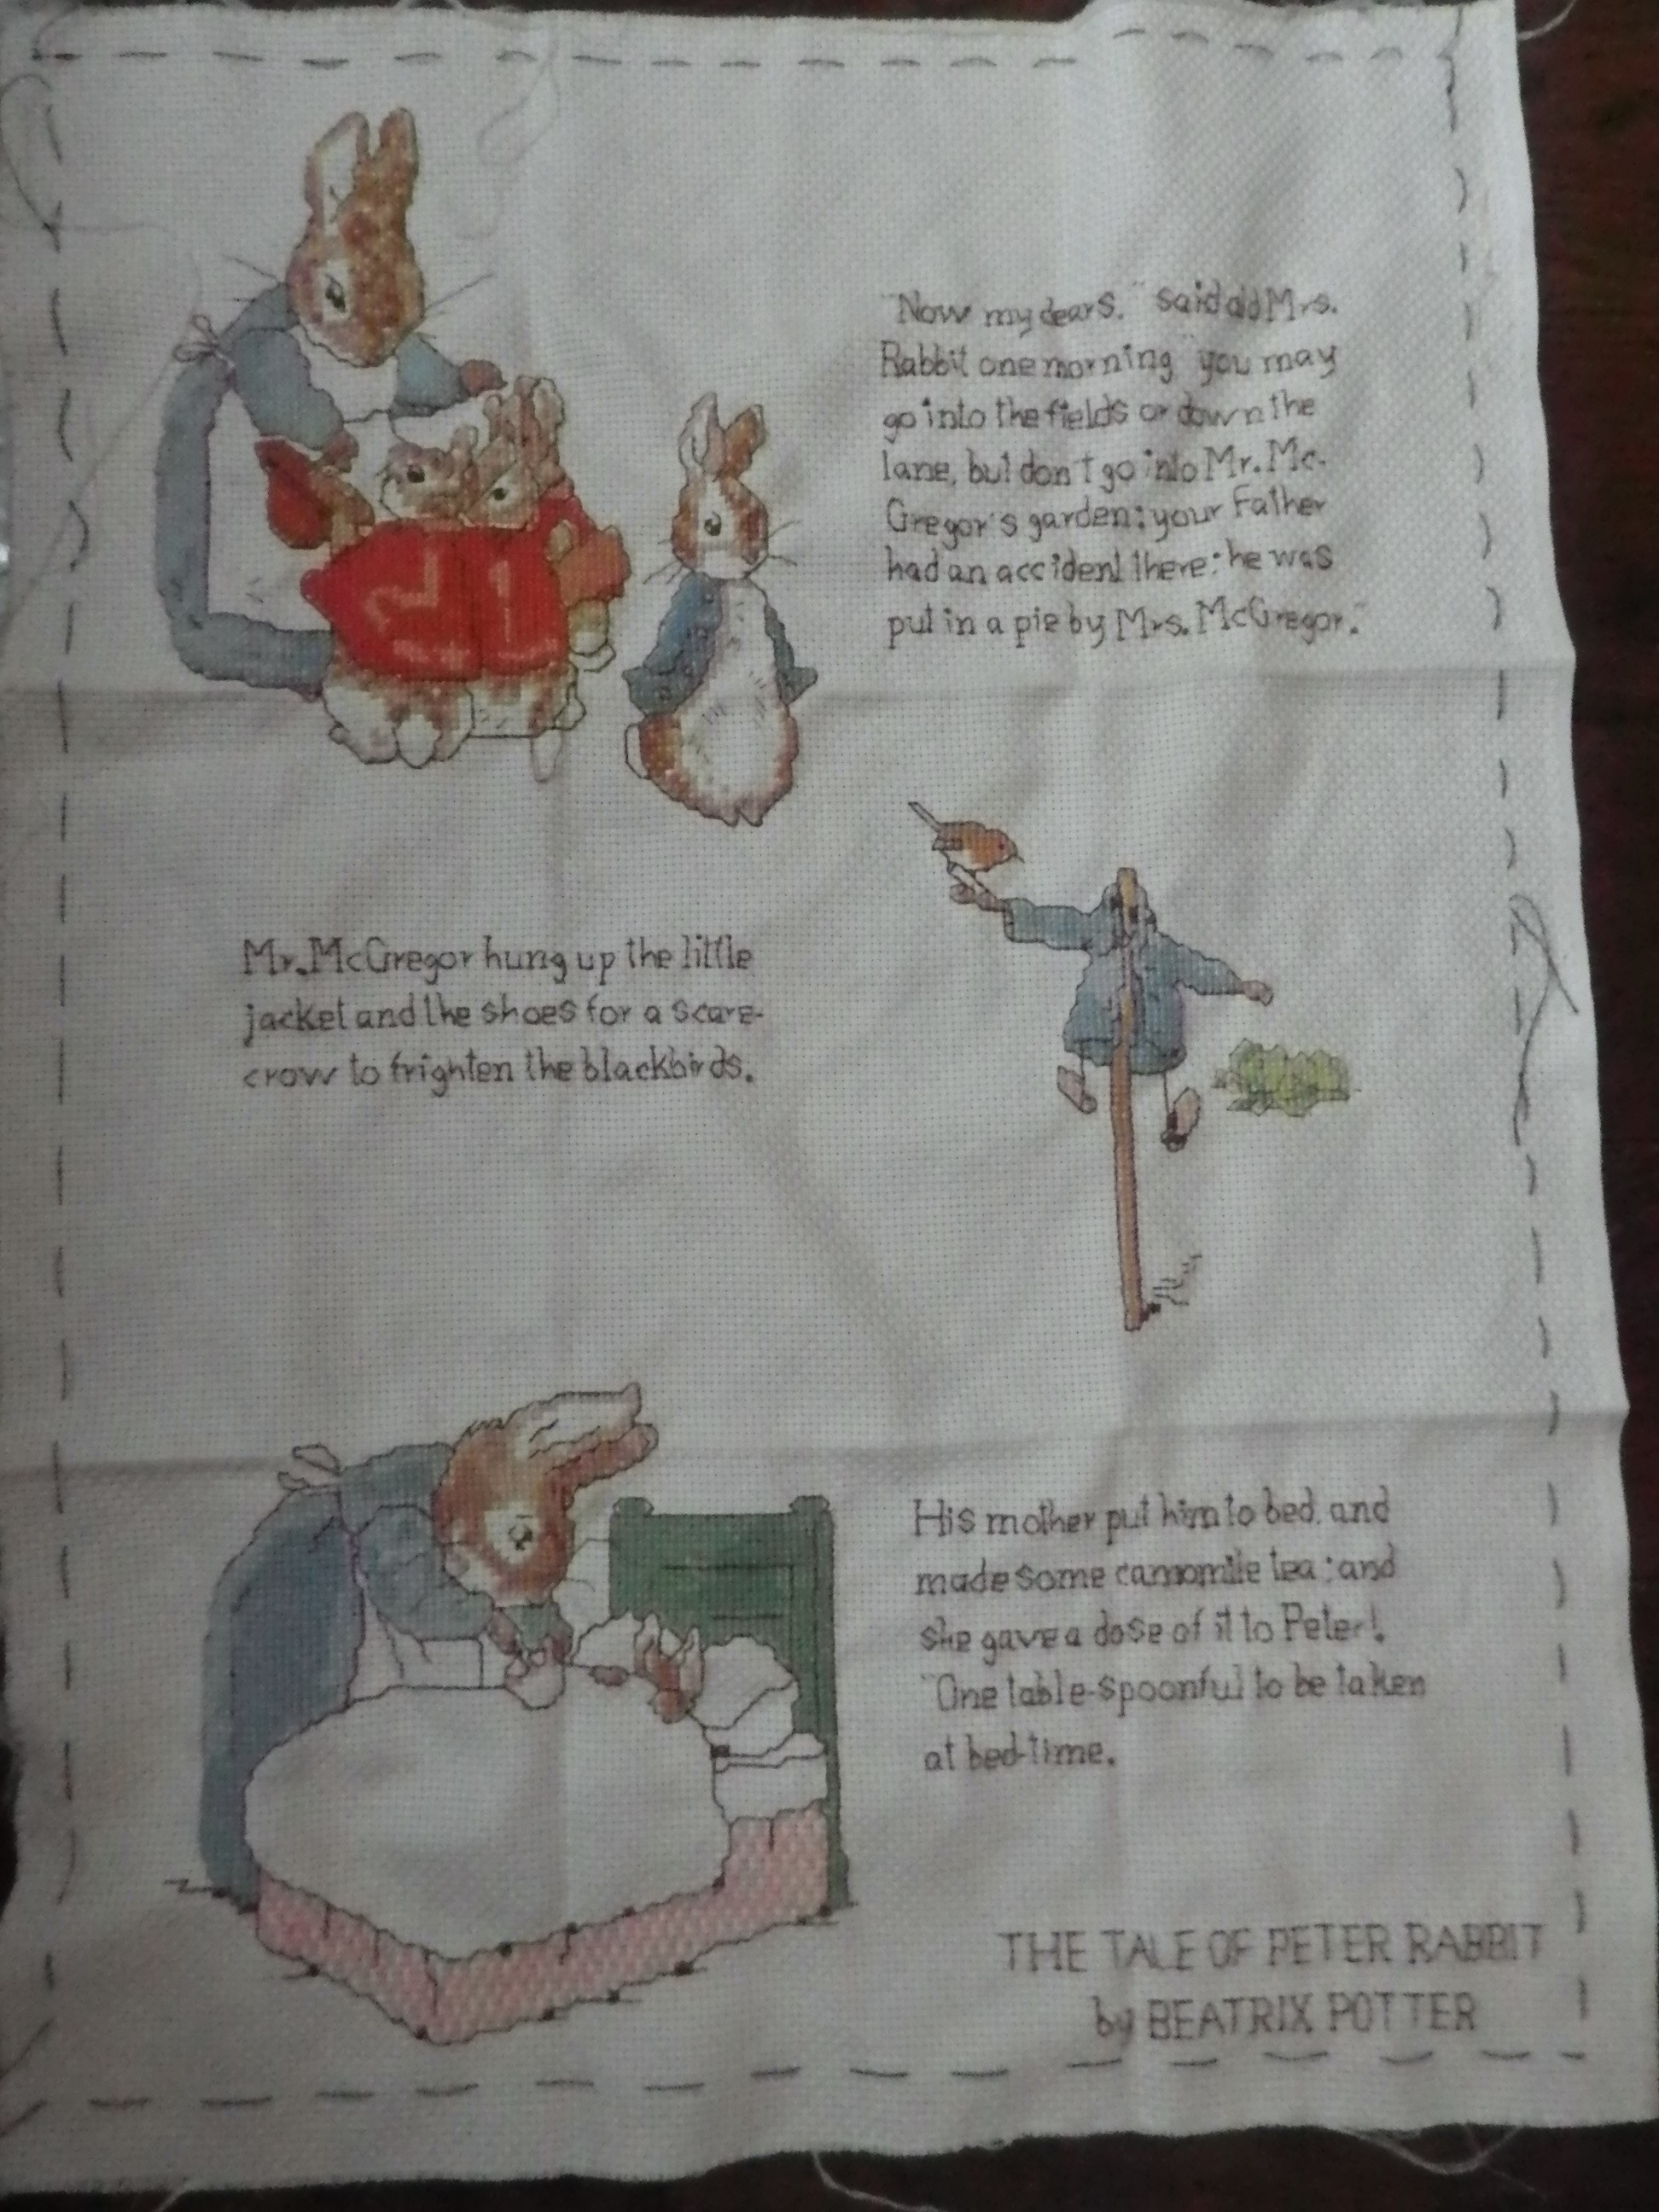 "Now my dears." said old Mrs.
Rabbit one morning "you may
go into the fields or down the
lane, but don't go into Mr. Mc-
Gregor's garden: your Father
had an accident there: he was
put in a pie by Mrs. McGregor."
Mr. McGregor hung up the little
jacket and the shoes for a scare-
crow to frighten the blackbirds.
His mother put him to bed, and
made some camomile tea: and
she gave a dose of it to Peter!
"One table-spoonful to be taken
at bed-time.
THE TALE OF PETER RABBIT
by BEATRIX POTTER